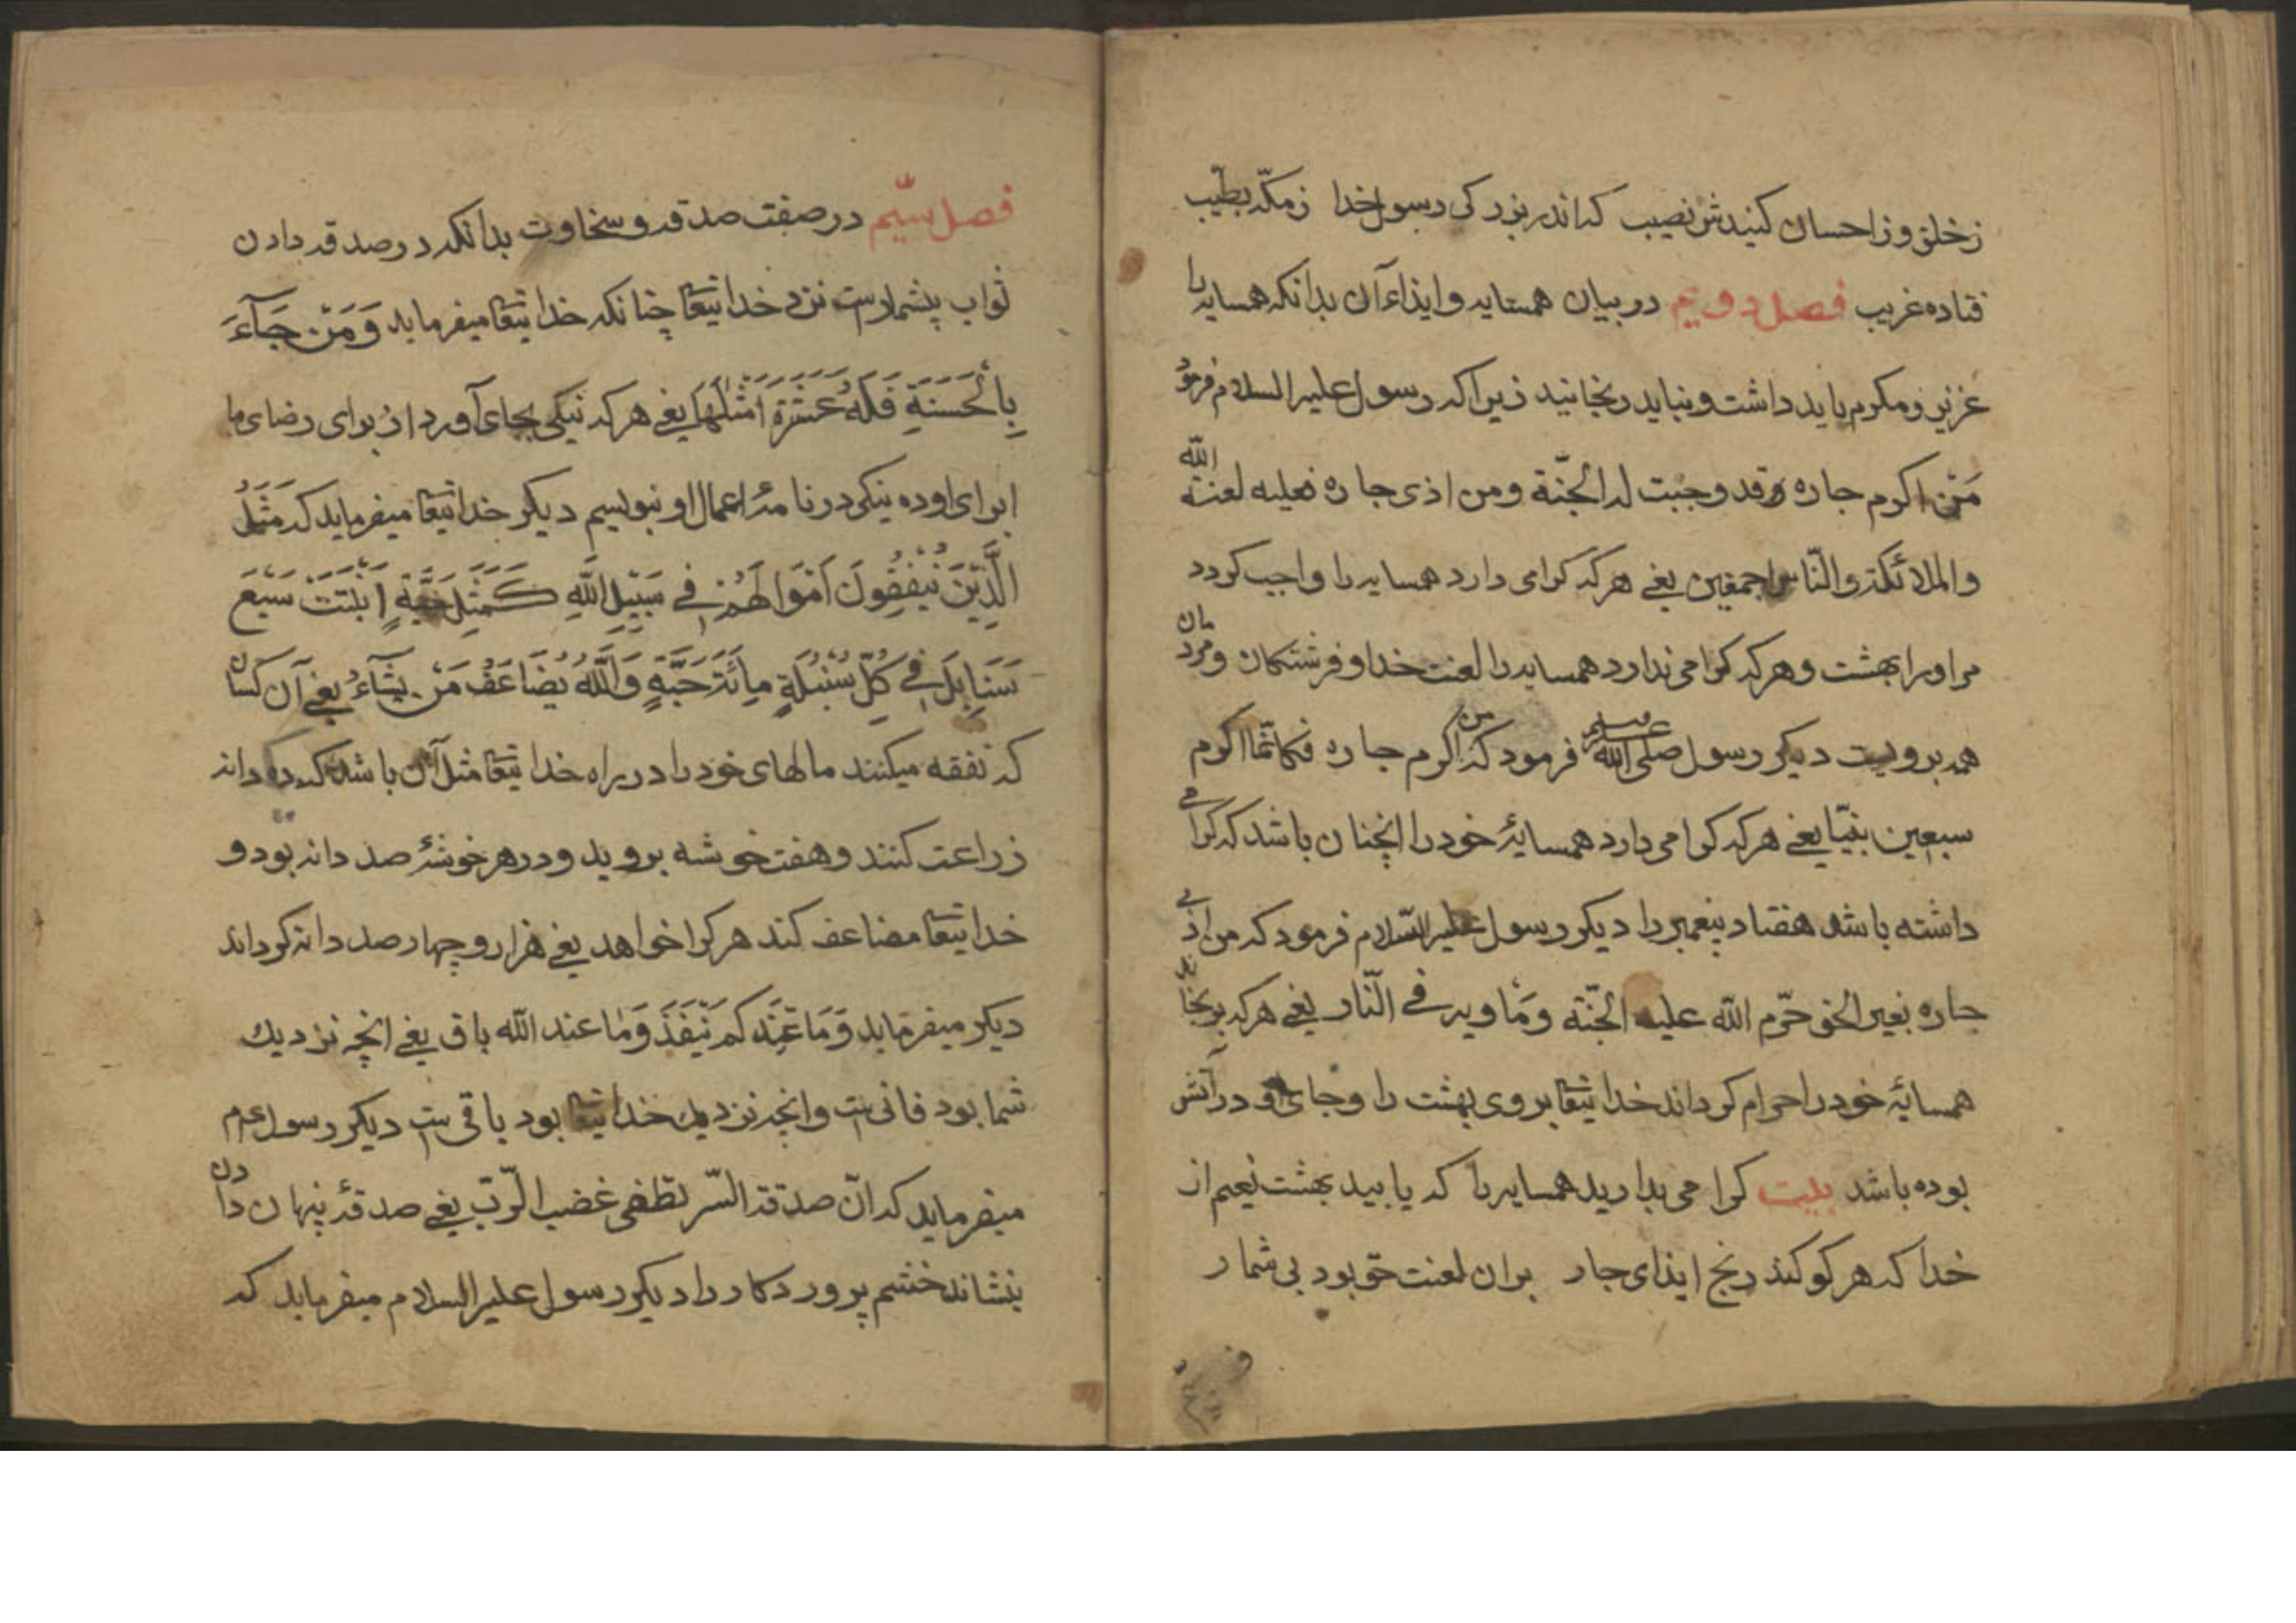 زخلق وز احسان کنیدش نصیب که اندر بزرکی رسول خدا زمکه بطیب
فتاده غریب فصل دویم در بیان همسایه و ایذاء آن بدانکه همسایه را
عزیز و مکرم باید داشت و نباید رنجانید زیرا که رسول علیه السلام فرمود
مَنْ اکرم جاره وقد وجبت له الجنّة ومن اذی جاره فعلیه لعنة الله
والملائکة والنّاس اجمعین یعنی هر که کرامی دارد همسایه را واجب کردد
مر اورا بهشت و هر که کرامی ندارد همسایه را لعنت خدا و فرشتکان و مردمان
همه برویست دیکر رسول صلی الله علیه وسلم فرمود که من اکرم جاره فکانّما اکرم
سبعین نبیّا یعنی هر که کرامی دارد همسایۀ خود را انچنان باشد که کرامی
داشته باشد هفتاد پیغمبر را دیکر رسول علیه السّلام فرمود که من اذی
جاره بغیر الحق حرّم الله علیه الجنّة وَمَأویه فی النّار یعنی هر که برنجاند
همسایۀ خود را حرام کرداند خدا تیعا بروی بهشت را و جای او در آتش
بوده باشد بیت کرامی بدارید همسایه را که یابید بهشت نعیم از
خدا که هر کو کند رنج ایذای جار بران لعنت حق بود بی شمار
فصل سیّم در صفت صدقه و سخاوت بدانکه در صدقه دادن
ثواب بیشمارست نزد خدا تیعا چنانکه خدا تیعا میفرماید وَمَنْ جَآءَ
بِالْحَسَنَةِ فَلَهُ عَشْرَةَ اَمْثَالُهَا یعنی هر که نیکی بجای آورد از برای رضای ما
ابرای او ده نیکی در نامۀ اعمال او نبویسیم دیکر خدا تیعا میفرماید که مَثَلُ
الَّذِیْنَ یُنْفِقُونَ اَمْوَالَهُمْ فِی سَبِیْلِ اللَّهِ کَمَثَلِ حَبَّةٍ اَنْبَتَتْ سَبْعَ
سَنَابِلَ فِی کُلِّ سُنْبُلَةٍ مِائَةُ حَبَّةٍ وَاللَّهُ یُضَاعَفُ مَنْ یَشَآءُ یعنی آن کسان
که نفقه میکنند مالهای خود را در راه خدا تیعا مثل آن باشد که ده دانه
زراعت کنند و هفت خوشه بروید و در هر خوشۀ صد دانه بود و
خدا تیعا مضاعف کند هر کرا خواهد یعنی هزار و چهار صد دانه کرداند
دیکر میفرماید وَمَا عِنْدَکُمْ یَنْفَذُ وَمَا عند الله باق یعنی انچه نزدیك
شما بود فانی ست و انچه نزدیك خدا تیعا بود باقی ست دیکر رسول عم
میفرماید که انّ صدقة السّر تطفی غضب الرّبّ یعنی صدقۀ پنهان دادن
بنشاند خشم پروردکار را دیکر رسول علیه السلام میفرماید که